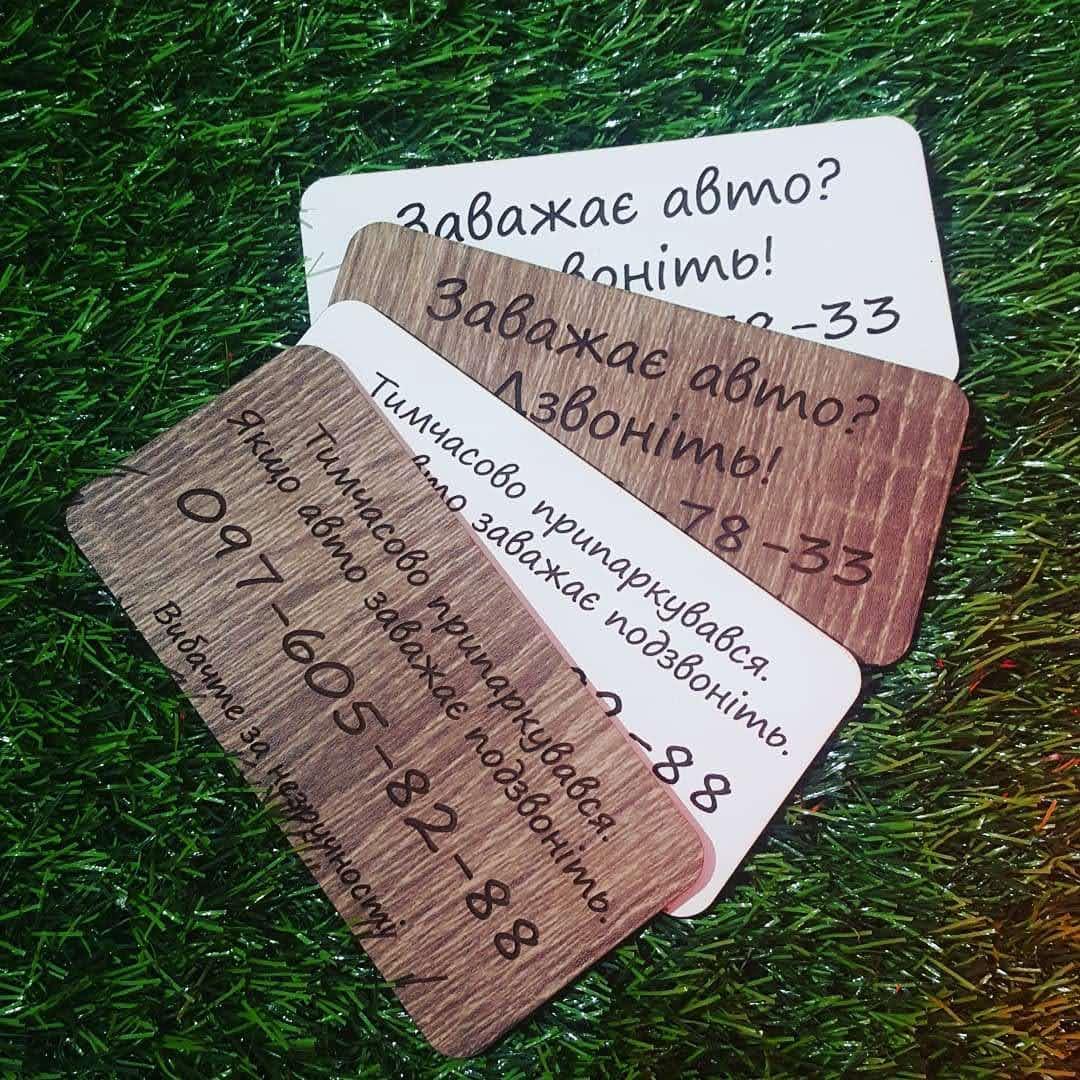 Заважає авто?
-33
Заважає авто?
Дзвоніть!
78-33
Тимчасово припаркувався.
заважає подзвоніть.
-88
Тимчасово припаркувався.
Якщо авто заважає подзвоніть.
097-605-82-88
Вибачте за незручності